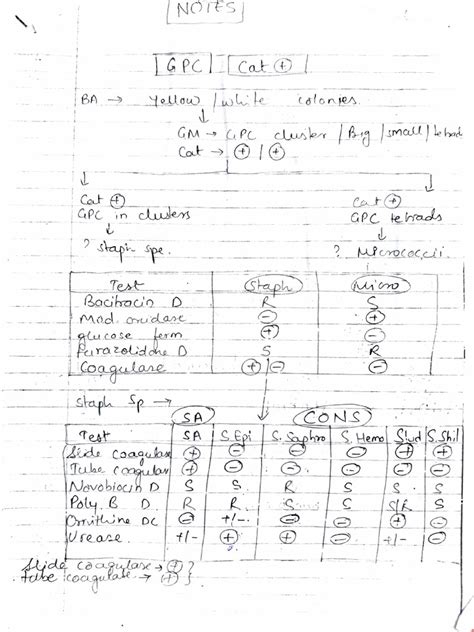 NOTES
GPC Cat ⊕
BA → yellow / white colonies.
↓
GM → GPC cluster / Big / small / tetrads
Cat → ⊕ / ⊕
Cat ⊕ Cat ⊕
GPC in clusters GPC tetrads
↓ ↓
? Staph spe. ? Micrococcii.
Test Staph Micro
Bacitracin D R S
Mod. oxidase ⊖ ⊕
glucose ferm ⊕ ⊖
Furazolidone D S R
Coagulase ⊕/⊖ ⊖
Staph Sp → SA CONS
Test SA S.Epi S.Saphro S.Hemo S.lud S.Shil
Slide coagulase ⊕ ⊖ ⊖ ⊖ ⊕ ⊕
Tube coagulase ⊕ ⊖ ⊖ ⊖ ⊖ ⊖
Novobiocin D S S R S S S
Poly. B D. R R S S S/R S
Ornithine DC ⊖ +/- ⊖ ⊖ ⊕ ⊖
Urease +/- ⊕ ⊕ ⊖ +/- ⊖
Slide coagulase → ⊕ }
Tube coagulase → ⊕ }